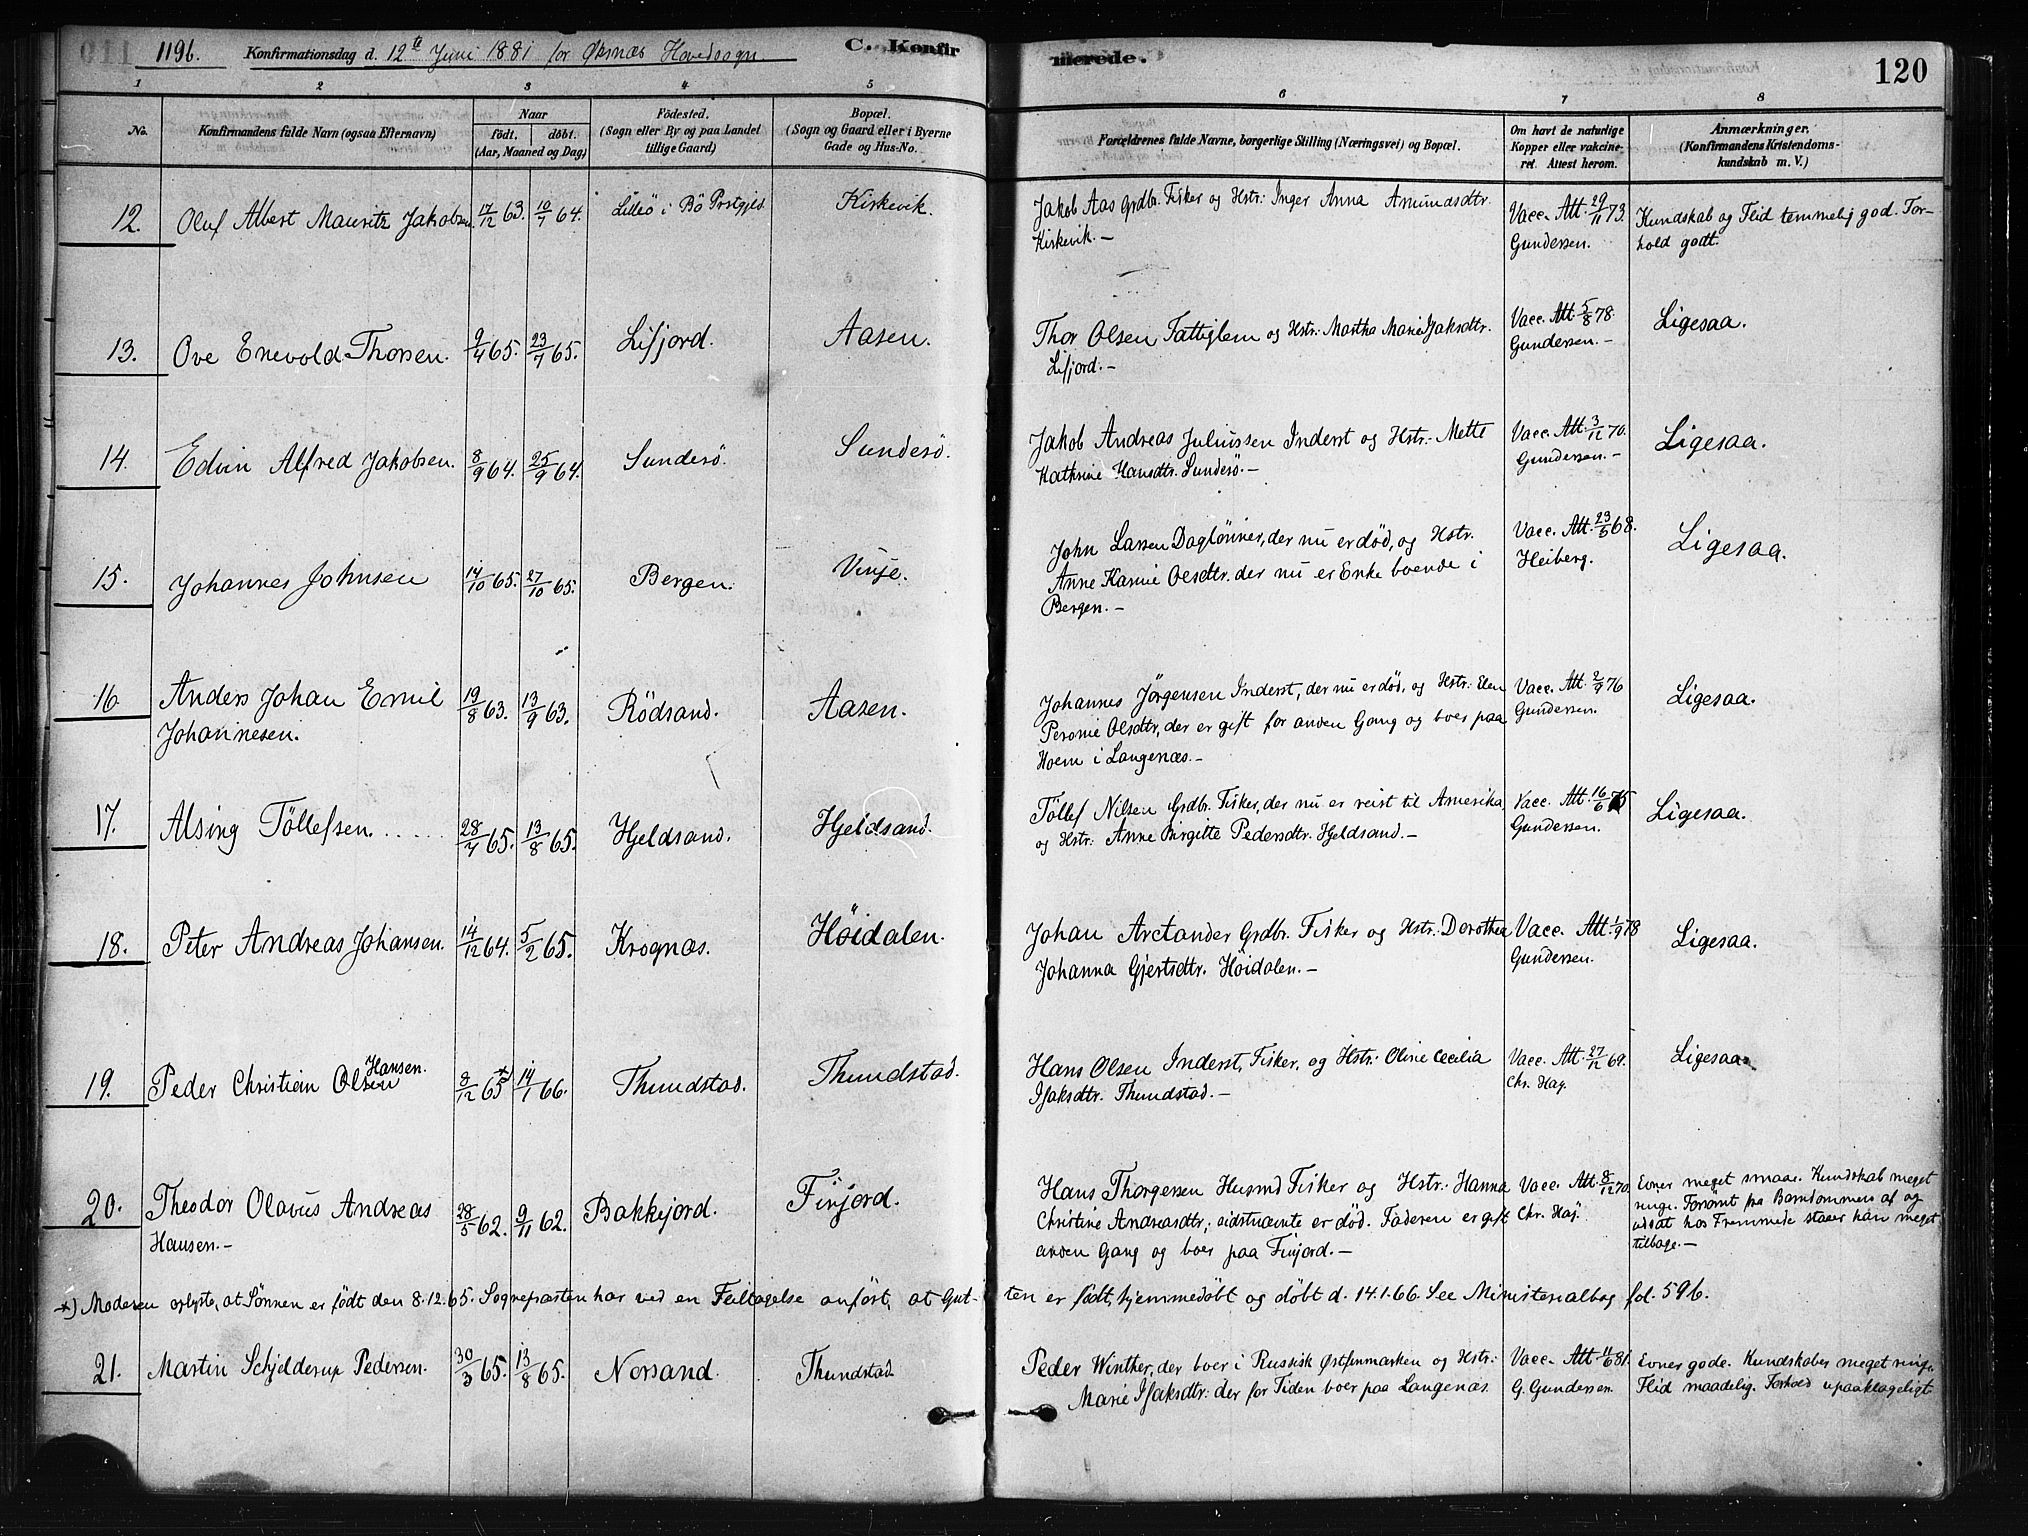 119b. Konfirmationsdag d. 12te Juni 1881 for Øksnæs Hovedsogn. C. Konfirmerede. 120
1 2 3 4 5 6 7 8
No. Konfirmandens fulde Navn (ogsaa Efternavn) Naar født, døbt. (Aar, Maaned og Dag) Fødested. (Sogn eller By og paa Landet tillige Gaard) Bopæl. (Sogn og Gaard eller i Byerne Gade og Hus-No. Forældrenes fulde Navne, borgerlige Stilling (Næringsvei) og Bopæl. Om havt de naturlige Kopper eller vakcineret. Attest herom. Anmærkninger. (Konfirmandens Kristendomskundskab m. V.)
12. Oluf Albert Mauritz Jakobsen. 17/12 63. 10/7 64. Lillø i Bö Prstgjel. Kirkevik. Jakob Aas Grdbr. Fisker og Hstr: Inger Anna Amundsdtr.
Kirkevik. — Vacc. Att. 29/11 73. Gundersen. Kundskab og Flid temmelig god. Forhold godt.
13. Ove Enevold Thorsen. 9/4 65. 23/7 65. Lifjord. Aasen. Thor Olsen Fattiglem og Hstr: Martha Marie Isaksdtr.
Lifjord. — Vacc. Att. 5/8 78. Gundersen. — Ligesaa.
14. Edvin Alfred Jakobsen. 8/9 64. 25/9 64. Sunderö. Sunderö. Jakob Andreas Juliussen Inderst og Hstr: Mette
Kathrine Hansdtr. Sunderö. — Vacc. Att. 3/12 70. Gundersen. — Ligesaa.
15. Johannes Johnsen 14/10 65. 27/10 65. Bergen. Vinje. John Larsen Daglönner, der nu er död, og Hstr.
Anne Karine Olsdtr. der nu er Enke boende i
Bergen. — Vacc. Att. 23/5 68. Heiberg. Ligesaa.
16. Anders Johan Emil
Johannesen. 19/8 63. 13/9 63. Rödsand. Aasen. Johannes Jörgensen Inderst, der nu er död, og Hstr: Elen
Peronie Olsdtr, der er gift for anden Gang og boer paa
Hoem i Langenæs. — Vacc. Att. 2/9 76 Gundersen. Ligesaa.
17. Alsing Töllefsen. . . . . 28/7 65. 13/8 65. Hjeldsand. Hjeldsand. Töllef Nilsen Grdbr. Fisker, der nu er reist til Amerika
og Hstr: Anne Birgitte Pedersdtr. Hjeldsand. — Vacc. Att. 16/6 75 Gundersen. Ligesaa.
18. Peter Andreas Johansen. 14/12 64. 5/2 65. Krognæs. Höidalen. Johan Arctander Grdbr. Fisker og Hstr: Dorothea
Johanna Gjertsdtr. Höidalen. — Vacc. Att. 1/9 78 Gundersen. Ligesaa.
19. Peder Christian Olsen Hansen. 8/12 65 *) 14/1 66. Thundstad. Thundstad. Hans Olsen Inderst, Fisker, og Hstr: Oline Cecilia
Isaksdtr. Thundstad. — Vacc. Att. 27/12 69. Chr. Hag. Ligesaa.
20. Theodor Olavus Andreas
Hansen. — 28/5 62. 9/11 62. Bakkejord. Finjord. Hans Thorgersen Husmd Fisker og Hstr: Hanna
Christine Andreasdtr; sidstnævnte er död. Faderen er gift
anden Gang og boer paa Finjord. — Vacc. Att. 8/12 70. Chr. Hag. Evner meget smaa. Kundskab meget
ringe. Forsömt fra Barndommen af og
udsat hos Fremmede staaer han meget
tilbage. —
*) Moderen oplyste, at Sönnen er födt den 8.12.65. Sognepræsten har ved en Feiltagelse anfört, at Gutten er födt, hjemmedöbt og döbt d. 14.1.66. See Ministerialbog fol. 596.
21. Martin Schjelderup Pedersen. 30/3 65. 13/8 65. Norsand. Thundstad. Peder Winther, der boer i Russisk Østfinmarken og Hstr:
Marie Isaksdtr: der for Tiden boer paa Langenæs. Vacc. Att. 11/6 81. G. Gundersen. Evner gode. Kundskaber meget ringe.
Flid maadelig. Forhold upaaklageligt